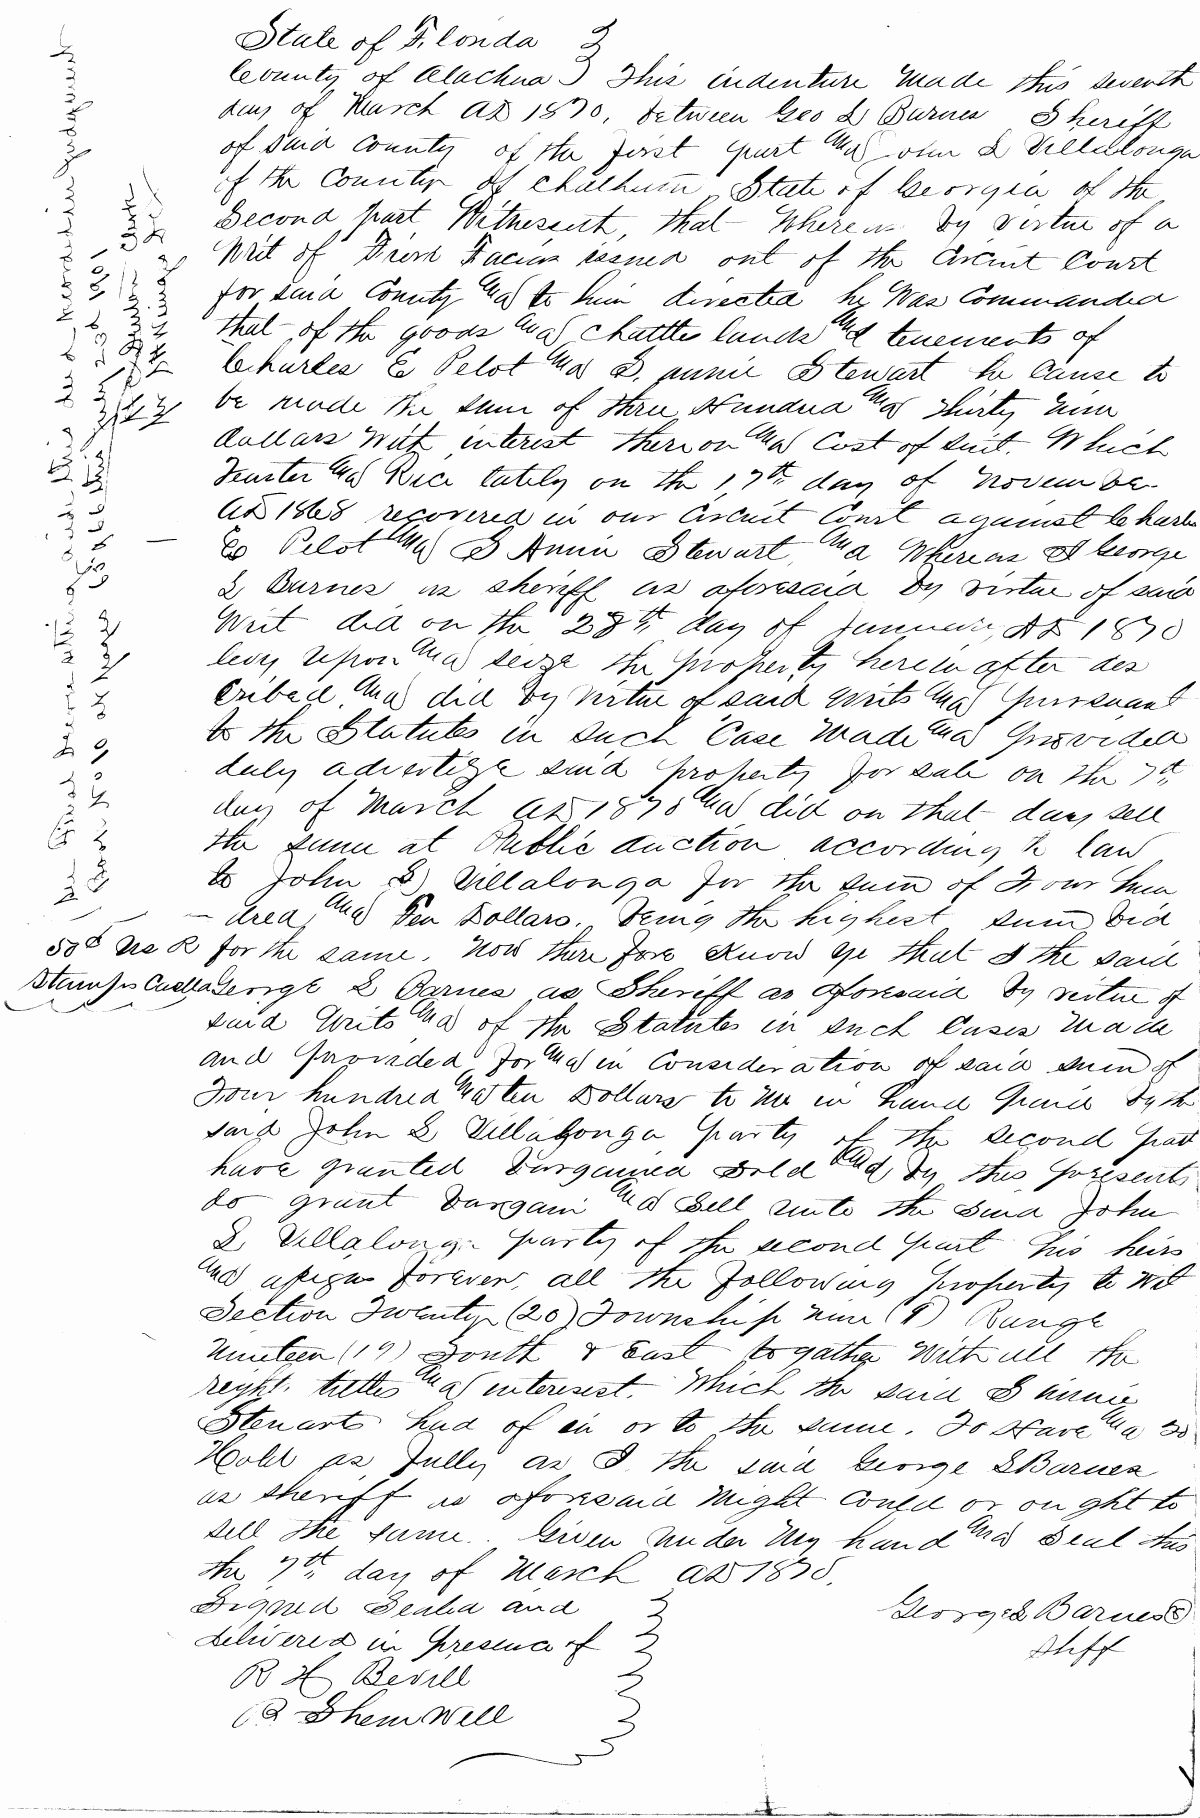 State of Florida
County of Alachua This indenture Made this seventh
day of March AD 1870, between Geo S Barnes Sheriff
of said County of the first part and John S Villalonga
of the County of Chatham State of Georgia of the
Second part, Witnesseth, that Whereas by virtue of a
Writ of Fieri Facias issued out of the Circuit Court
for said County and to him directed he Was Commanded
that of the goods and chattles lands and tenements of
Charles E Pelot and S. Annie Stewart he Cause to
be made the sum of three Hundred and Thirty nine
dollars With interest thereon and Cost of suit. Which
and Rice lately on the 17th day of November
AD 1868 recovered in our Circuit Court against Charles
E Pelot and S Annie Stewart, and Whereas I George
S Barnes as sheriff as aforesaid by virtue of said
Writ did on the 28th day of January, AD 1870
levy upon and seize the property herein after des
cribed, and did by virtue of said writs and pursuant
to the Statutes in such Case Made and provided
duly advertize said property for sale on the 7th
day of March AD 1870 and did on that day sell
the same at Public auction according to law
to John S Villalonga for the sum of Four hun
dred and Ten Dollars. being the highest sum bid
50c US R for the same. Now there fore Know ye that I the said
Stamps George S Barnes as Sheriff as aforesaid by virtue of
said Writs and of the Statutes in such Cases Made
and provided for and in Consideration of said sum of
Four hundred and ten Dollars to Me in hand paid by the
said John S Villalonga party of the second part
have granted bargained sold and by this presents
do grant bargain and Sell unto the said John
S Villalonga party of the second part his heirs
and assigns forever, all the following property to Wit
Section Twenty (20) Township nine (9) Range
nineteen (19) South & East togather With all the
reght. tittles and interesest. Which the said S Annie
Stewart had of in or to the same. To Have and to
Hold as fully as I the said George S Barnes
as sheriff as aforesaid Might Could or ought to
sell the same. Given under My hand and Seal this
the 7th day of March AD 1870.
Signed Sealed and
George S Barnes
delivered in presence of
Shff
R H Bevill
Shemwell